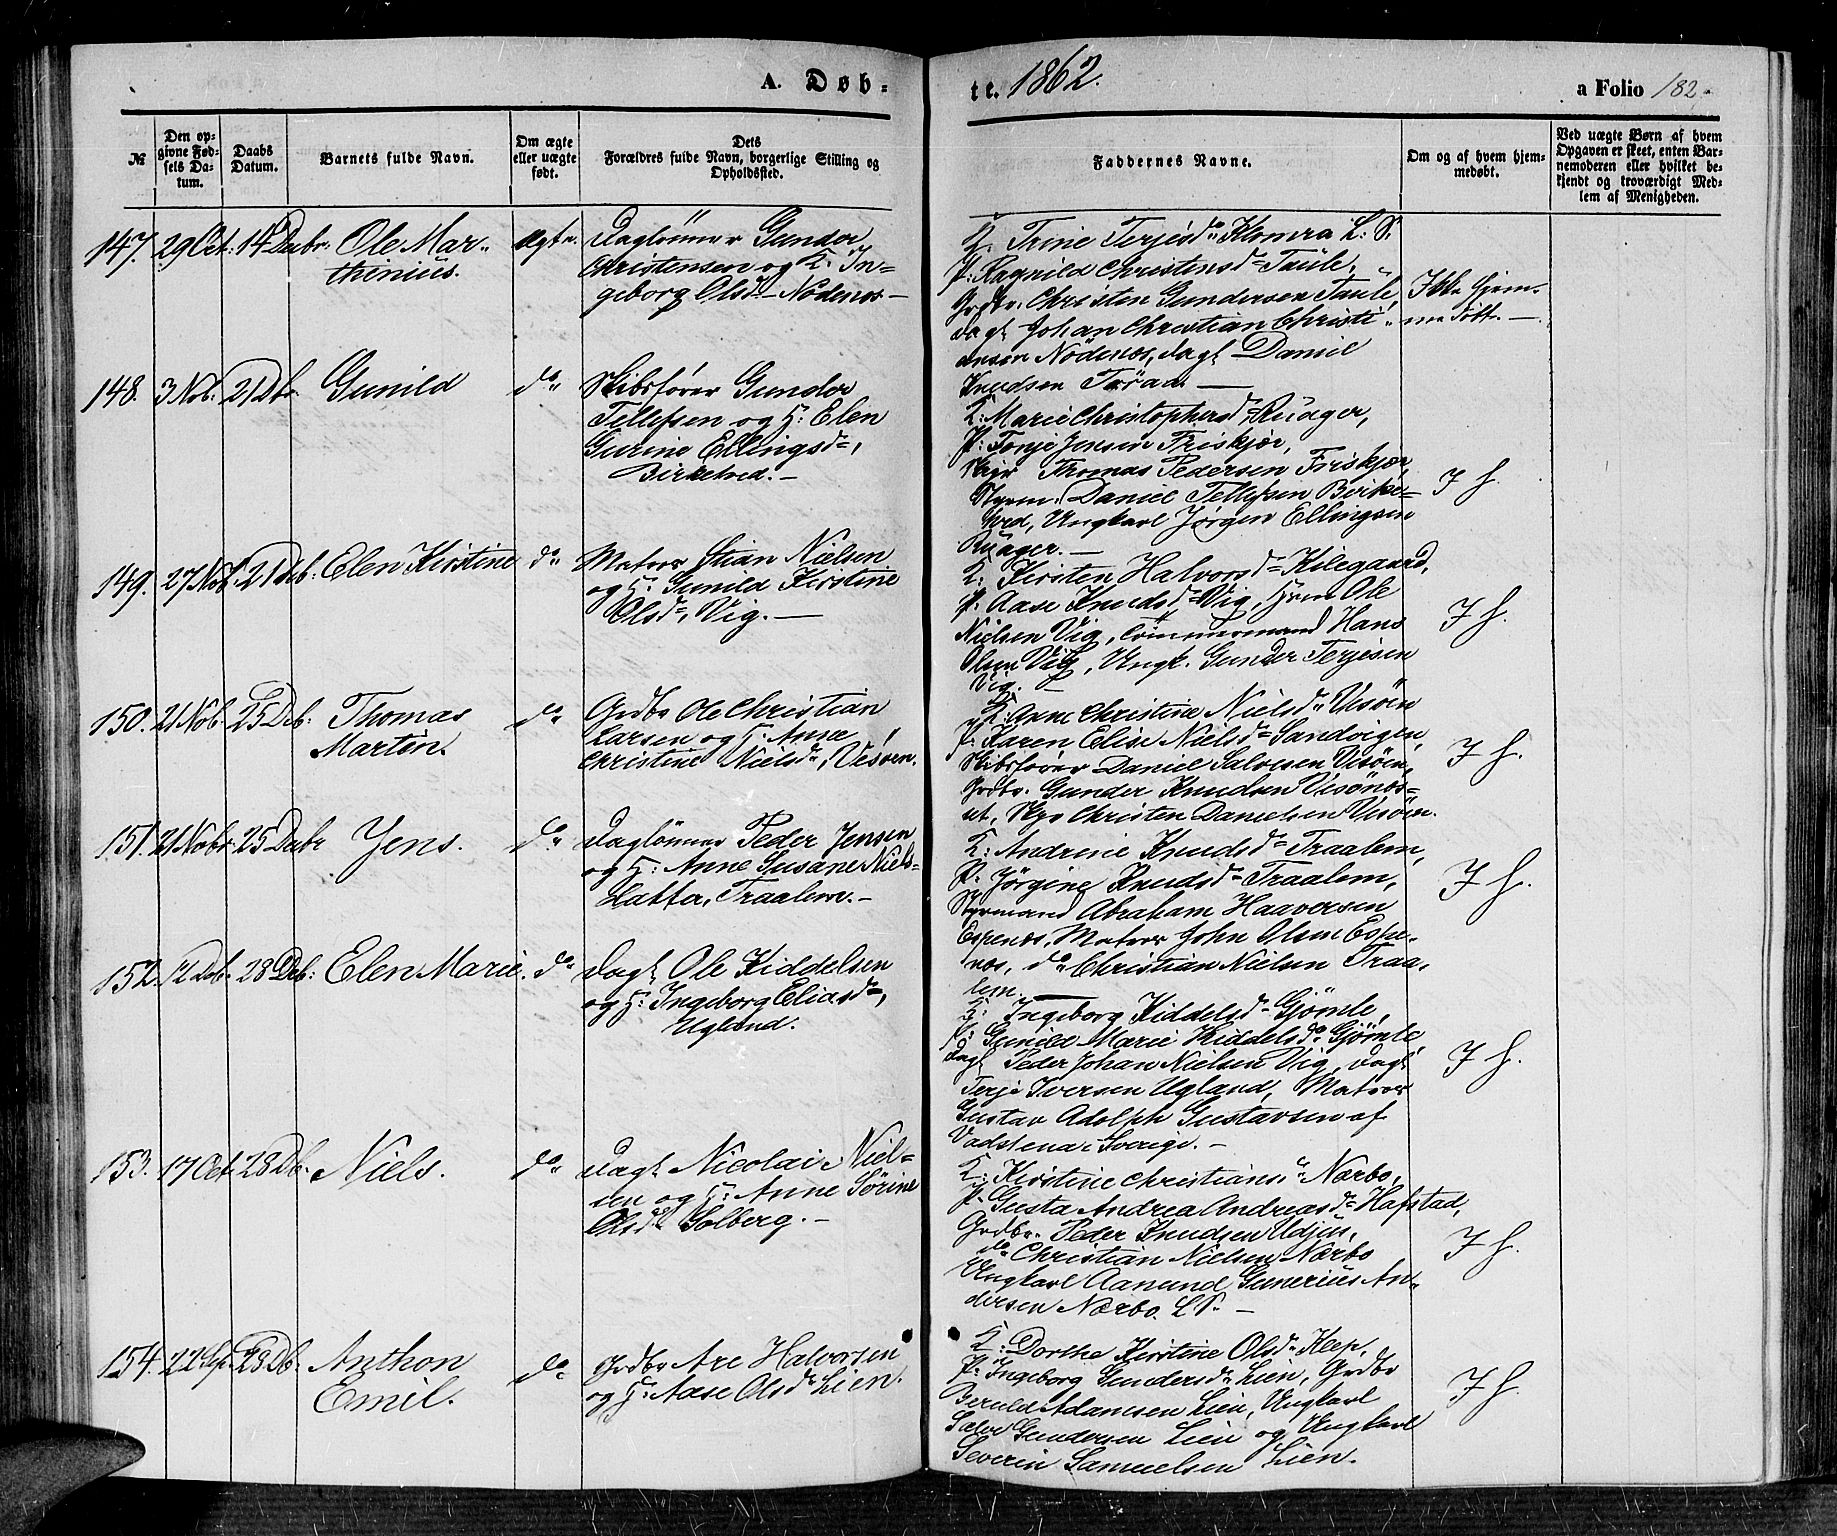 A. Døb-
te. 1862.
a Folio 182.
№
Den op-
givne Fød-
sels Da-
tum.
Daabs
Datum.
Barnets fulde Navn.
Om ægte
eller uægte
født.
Dets
Forældres fulde Navn, borgerlige Stilling og
Opholdssted.
Faddernes Navne.
Om og af hvem hjem-
medøbt.
Ved uægte Børn af hvem
Opgaven er skeet, enten Bar-
nemoderen eller hvilket be-
kjendt og troværdigt Med-
lem af Menigheden.
147. 29 Oct: 14 Decbr: Ole Mar-
thinius.
ægte.
Daglönner Gunder
Christensen og K. In=
geborg Olsd. Nödenes—
K. Trine Terjesd. Klomra L. S.
P. Ragnild Christensd= Taule,
Grdbr. Christen Gundersen Taule,
Dagl Johan Christian Christi-
ansen Nödenes, Dagl Daniel
Knudsen Töraa. —
Ikke Hjem-
me döbt. —
148. 3 Nob. 21 Dbr Gunild
do
Skibsfører Gunder
Tellefsen og H: Elen
Gurine Ellingsd=,
Birketved.—
K: Marie Christophersd= Ruager,
P: Tonje Jensen Friskjær,
Skpr Thomas Pedersen Friskjær,
Styrm. Daniel Tellefsen Birke=
tved, Ungkarl Jørgen Ellingsen
Ruager. —
I H.
149. 27 Nob. 21 Deb: Elen Kirstine
do
Matros Stian Nielsen
og H: Gunild Kirstine
Olsd=, Vig. —
K: Kirsten Halvorsd= Kilegaard,
P: Aase Knudsd= Vig, Hrm Ole
Nielsen Vig, Tömmermand Hans
Olsen Vig, Ungk. Gunder Terjesen
Vig. —
I H.
150. 21 Nob. 25 Deb: Thomas
Martin.
do
Grdbr Ole Christian
Larsen og H. Anne
Christine Nielsd=, Visøen.
K. Anne Christine Nielsd= Visöen
P. Karen Elise Nielsd= Sandvigen,
Skibsfører Daniel Salvesen Visöen,
Grdbr. Gunder Knudsen Visönes=
et, Skpr Christen Danielsen Visöen.
I H.
151. 21 Nobr. 25 Decbr Jens.
do
Daglönner Peder Jensen
og H: Anne Susane Niels=
Datter, Traalem.—
K: Andrine Knudsd= Traalem,
P: Jörgine Knudsd= Traalem,
Styrmand Abraham Haaversen
Espenes, Matros John Olsen Espe-
nes, do Christian Nielsen Traa-
lem. —
I H.
152. 12 Deb. 28 Deb: Elen Marie.
do
Dagl Ole Kiddelsen
og H: Ingeborg Eliasd=,
Ugland.
K: Ingeborg Kiddelsd= Gjömle,
P: Gunild Marie Kiddelsd= Gjömle,
Dagl Peder Johan Nielsen Vig, Dagl
Terje Iversen Ugland, Matros
Gustav Adolph Gustavsen af
Vadstena i Sverige. —
I H.
153. 17 Oct 28 Db. Niels.
do
Dagl Nicolai Niel=
sen og H: Anne Sörine
Olsd= Solberg. —
K: Kirstine Christians= Nærbo,
P. Gusta Andrea Andreasd= Hafstad,
Grdbr. Peder Knudsen Udjus,
do Christian Nielsen Nærbo
Ungkarl Aanund Gunerius An-
dersen Nærbo. L S. —
I H.
154. 22 Sep. 28 Db. Anthon
Emil.
do
Grdbr Are Halvorsen
og H: Aase Olsd= Lien.
K: Dorthe Kirstine Olsd= Klep,
P. Ingeborg Gundersd= Lien, Grdbr
Berulf Adamsen Lien, Ungkarl
Salve Gundersen Lien og Ungkarl
Severin Samuelsen Lien.
I H.